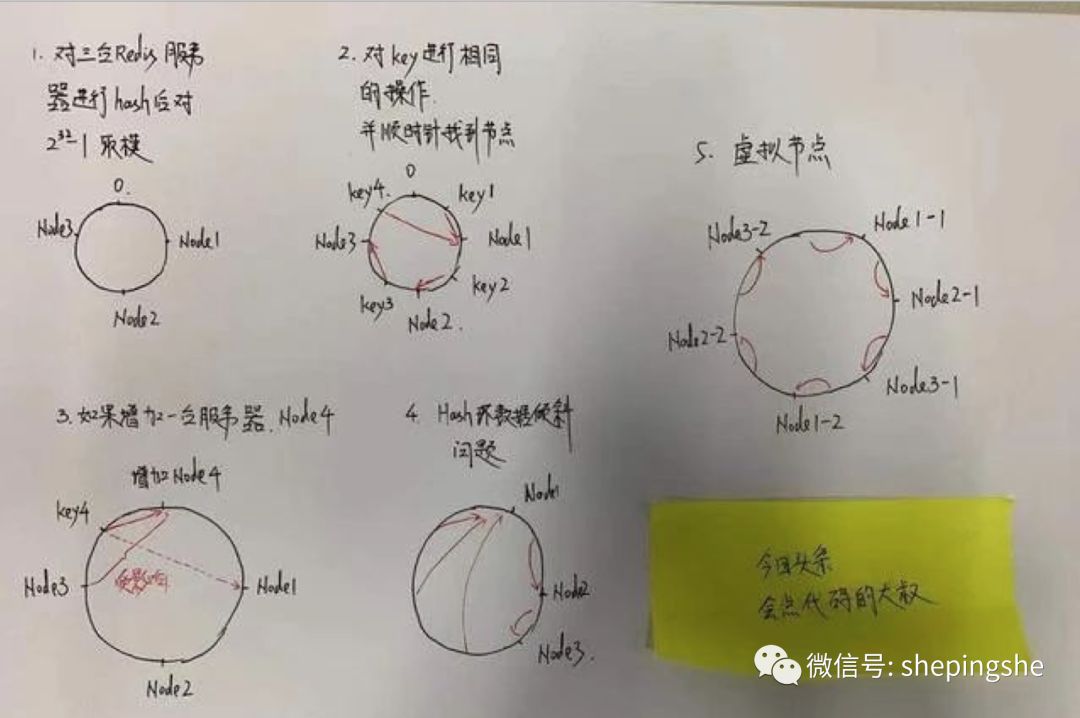 1. 对三台Redis服务
器进行hash后对
2³²-1 取模
0.
Node3
Node1
Node2
2. 对key进行相同
的操作.
并顺时针找到节点
0
key4.
key1
Node3
Node1
key2
key3
Node2.
3. 如果增加一台服务器. Node4
增加Node4
key4
受影响
Node3
Node1
Node2
4. Hash环数据倾斜
问题
Node1
Node2
Node3.
5. 虚拟节点
Node3-2
Node1-1
Node2-1
Node2-2
Node3-1
Node1-2
今日头条
会点代码的大叔
微信号: shepingshe